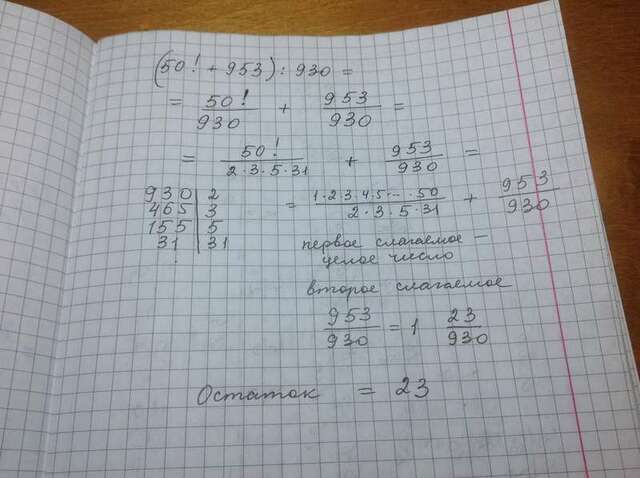 (50! + 953) : 930 =
= 50!/930 + 953/930 =
= 50!/2·3·5·31 + 953/930 =
930 | 2
465 | 3
155 | 5
31 | 31
= 1·2·3·4·5·...·50/2·3·5·31 + 953/930
первое слагаемое —
целое число
второе слагаемое
953/930 = 1 23/930
Остаток = 23